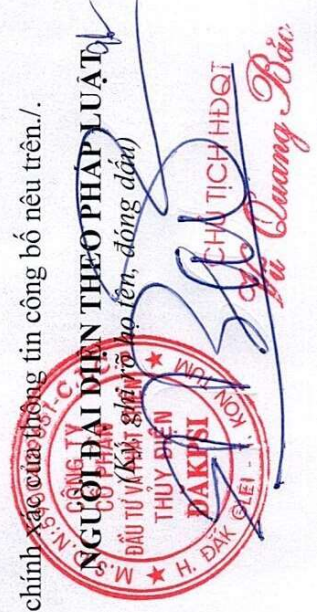 chính xác của thông tin công bố nêu trên./.
NGƯỜI ĐẠI DIỆN THEO PHÁP LUẬT
(Ký, ghi rõ họ tên, đóng dấu)
CÔNG TY
CỔ PHẦN
ĐẦU TƯ VÀ PHÁT TRIỂN
THỦY ĐIỆN
ĐAKPSI
H. ĐĂK GLEI - T. KON TUM
CHỦ TỊCH HĐQT
Quang Bắc